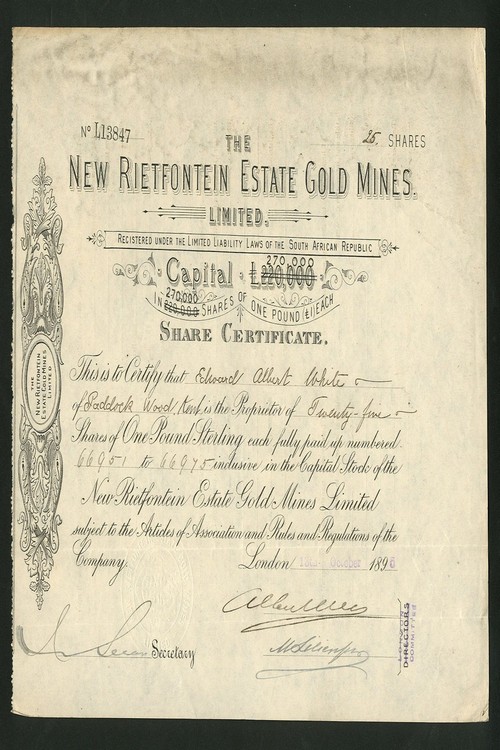 No L13847
25 SHARES
THE
NEW RIETFONTEIN ESTATE GOLD MINES.
LIMITED.
REGISTERED UNDER THE LIMITED LIABILITY LAWS OF THE SOUTH AFRICAN REPUBLIC
270,000
Capital £220,000
270,000
IN 220,000 SHARES OF ONE POUND (£1) EACH
SHARE CERTIFICATE.
THE NEW RIETFONTEIN ESTATE GOLD MINES LIMITED
This is to Certify that Edward Albert White
of Paddock Wood Kent is the Proprietor of Twenty-five
Shares of One Pound Sterling each fully paid up numbered
66951 to 66975 inclusive in the Capital Stock of the
New Rietfontein Estate Gold Mines Limited
subject to the Articles of Association and Rules and Regulations of the
Company.
London October 1895
Secretary
LONDON
DIRECTORS
COMMITTEE